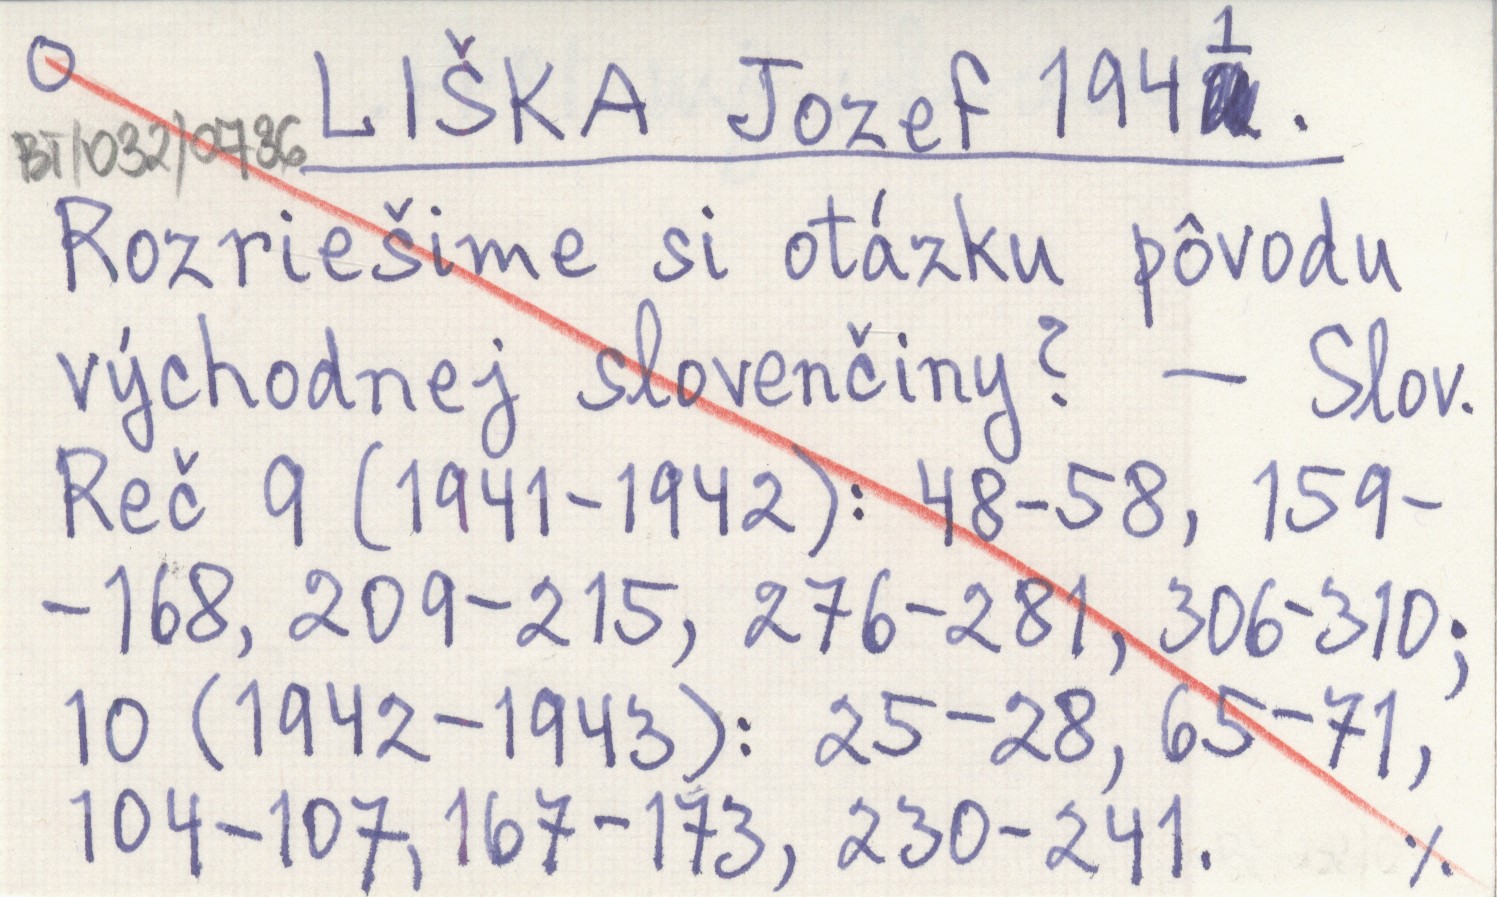 O
LIŠKA Jozef 1941.
BT/032/0736
Rozriešime si otázku pôvodu
východnej slovenčiny? — Slov.
Reč 9 (1941-1942): 48-58, 159-
-168, 209-215, 276-281, 306-310;
10 (1942-1943): 25-28, 65-71,
104-107, 167-173, 230-241. ·/.